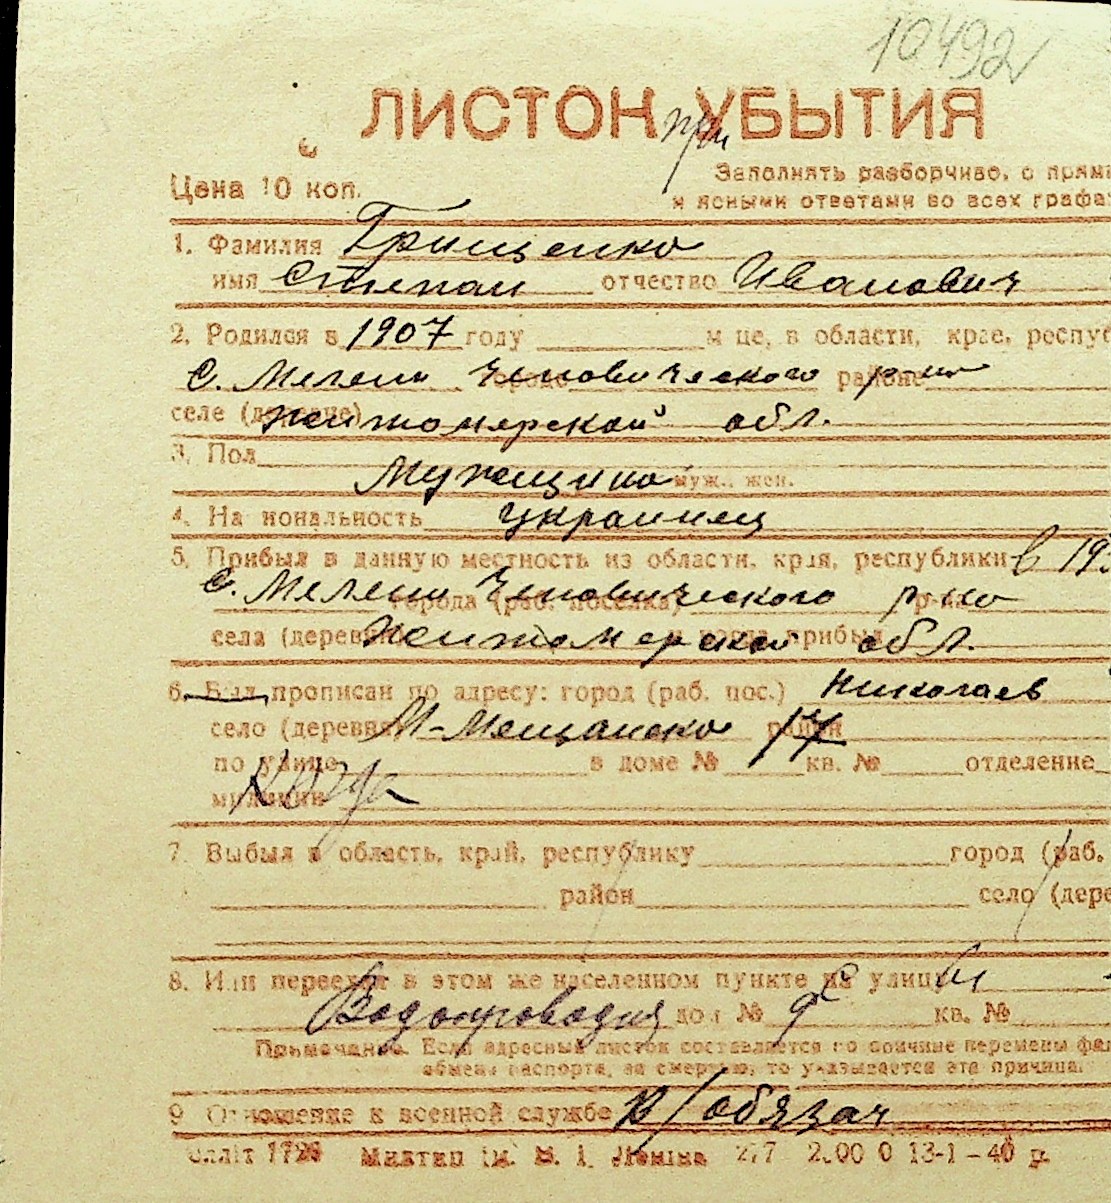 10492
ЛИСТОК при УБЫТИЯ
Цена 10 коп. Заполнять разборчиво, с прямы
и ясными ответами во всех графа
1. Фамилия Грищенко
имя Степан отчество Иванович
2. Родился в 1907 году м це, в области, крае, респуб
С. Мелени Чеповического района р-на
селе (деревне) Житомерской обл.
3. Пол Мужщина муж., жен.
4. На иональность украинец
5. Прибыл в данную местность из области, края, республики в 19
С. Мелени города (раб. поселка) Чеповического р-на
села (деревни) Житомерской прибыл обл.
6. Был прописан по адресу: город (раб. пос.) Николаев
село (деревня) М-Мещанско 17 район
по улице в доме № кв. № отделение
милиции
7. Выбыл в область, край, республику город (раб.
район село (дере
8. Или переехал в этом же населенном пункте на улицы
Водопроводная дом № 9 кв. №
Примечание. Если адресный листок составляется по причине перемены фа
обмена паспорта, за смертью, то указывается эта причина.
9 Отношение к военной службе в/обязан
1726 Милтип ім. В. І. Леніна 2.00 0 13-1-40 р.